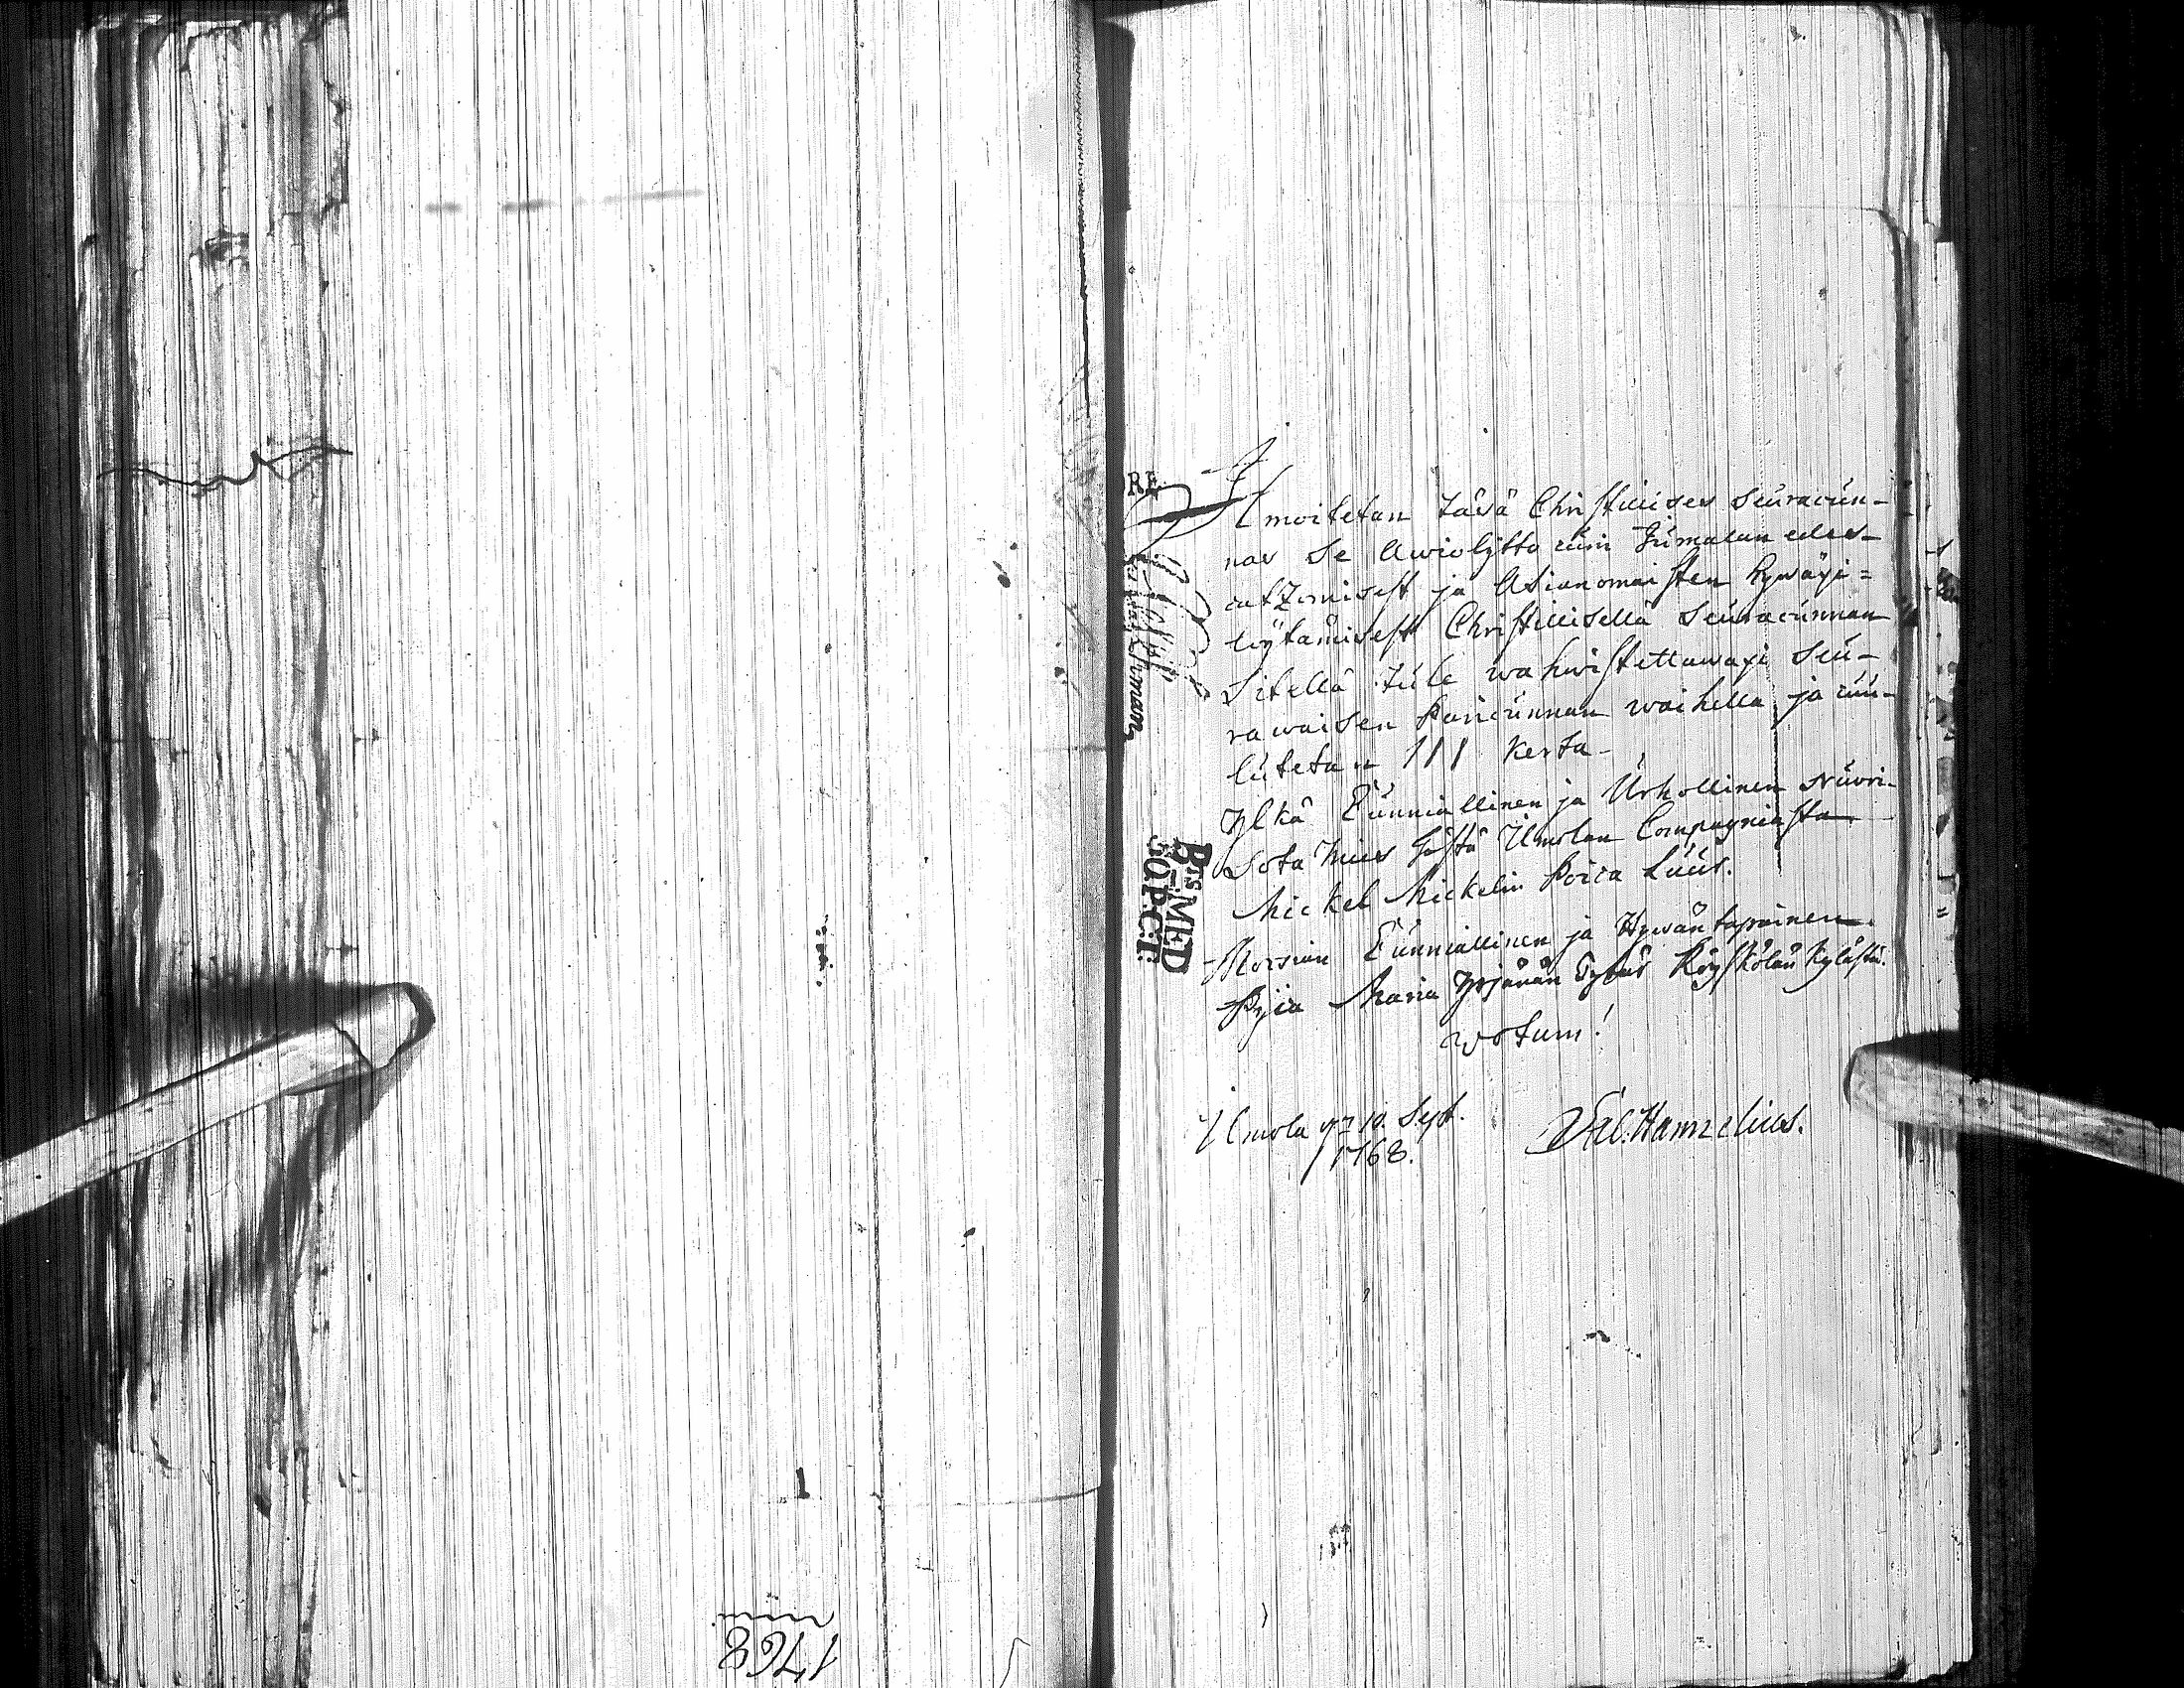 Ilmoitetan täsä Christillises Seuracun-
nas se Awiolijtto cuin Jumalan edes-
catzomisest ja Asianomaisten hywäxi-
löytämisest Christillisellä Seuracunnan
Sitellä tule wahwistettawaxi Seu-
rawaisen Pariscunnan waihella ja cuu-
lutetan III kerta-
Ylkä Cunniallinen ja Urhollinen Nuori-
Sota mies tästä Ilmolan Compagniasta
Mickel Mickelin Poica Luur.
Morsian Cunniallinen ja Hywäntapainen
Pijca Maria Yrjänän Tytär Köyskölän Kylästä.
Votum!
Ilmola 10. Sept.
1768.
Hamnelius.
1
1768